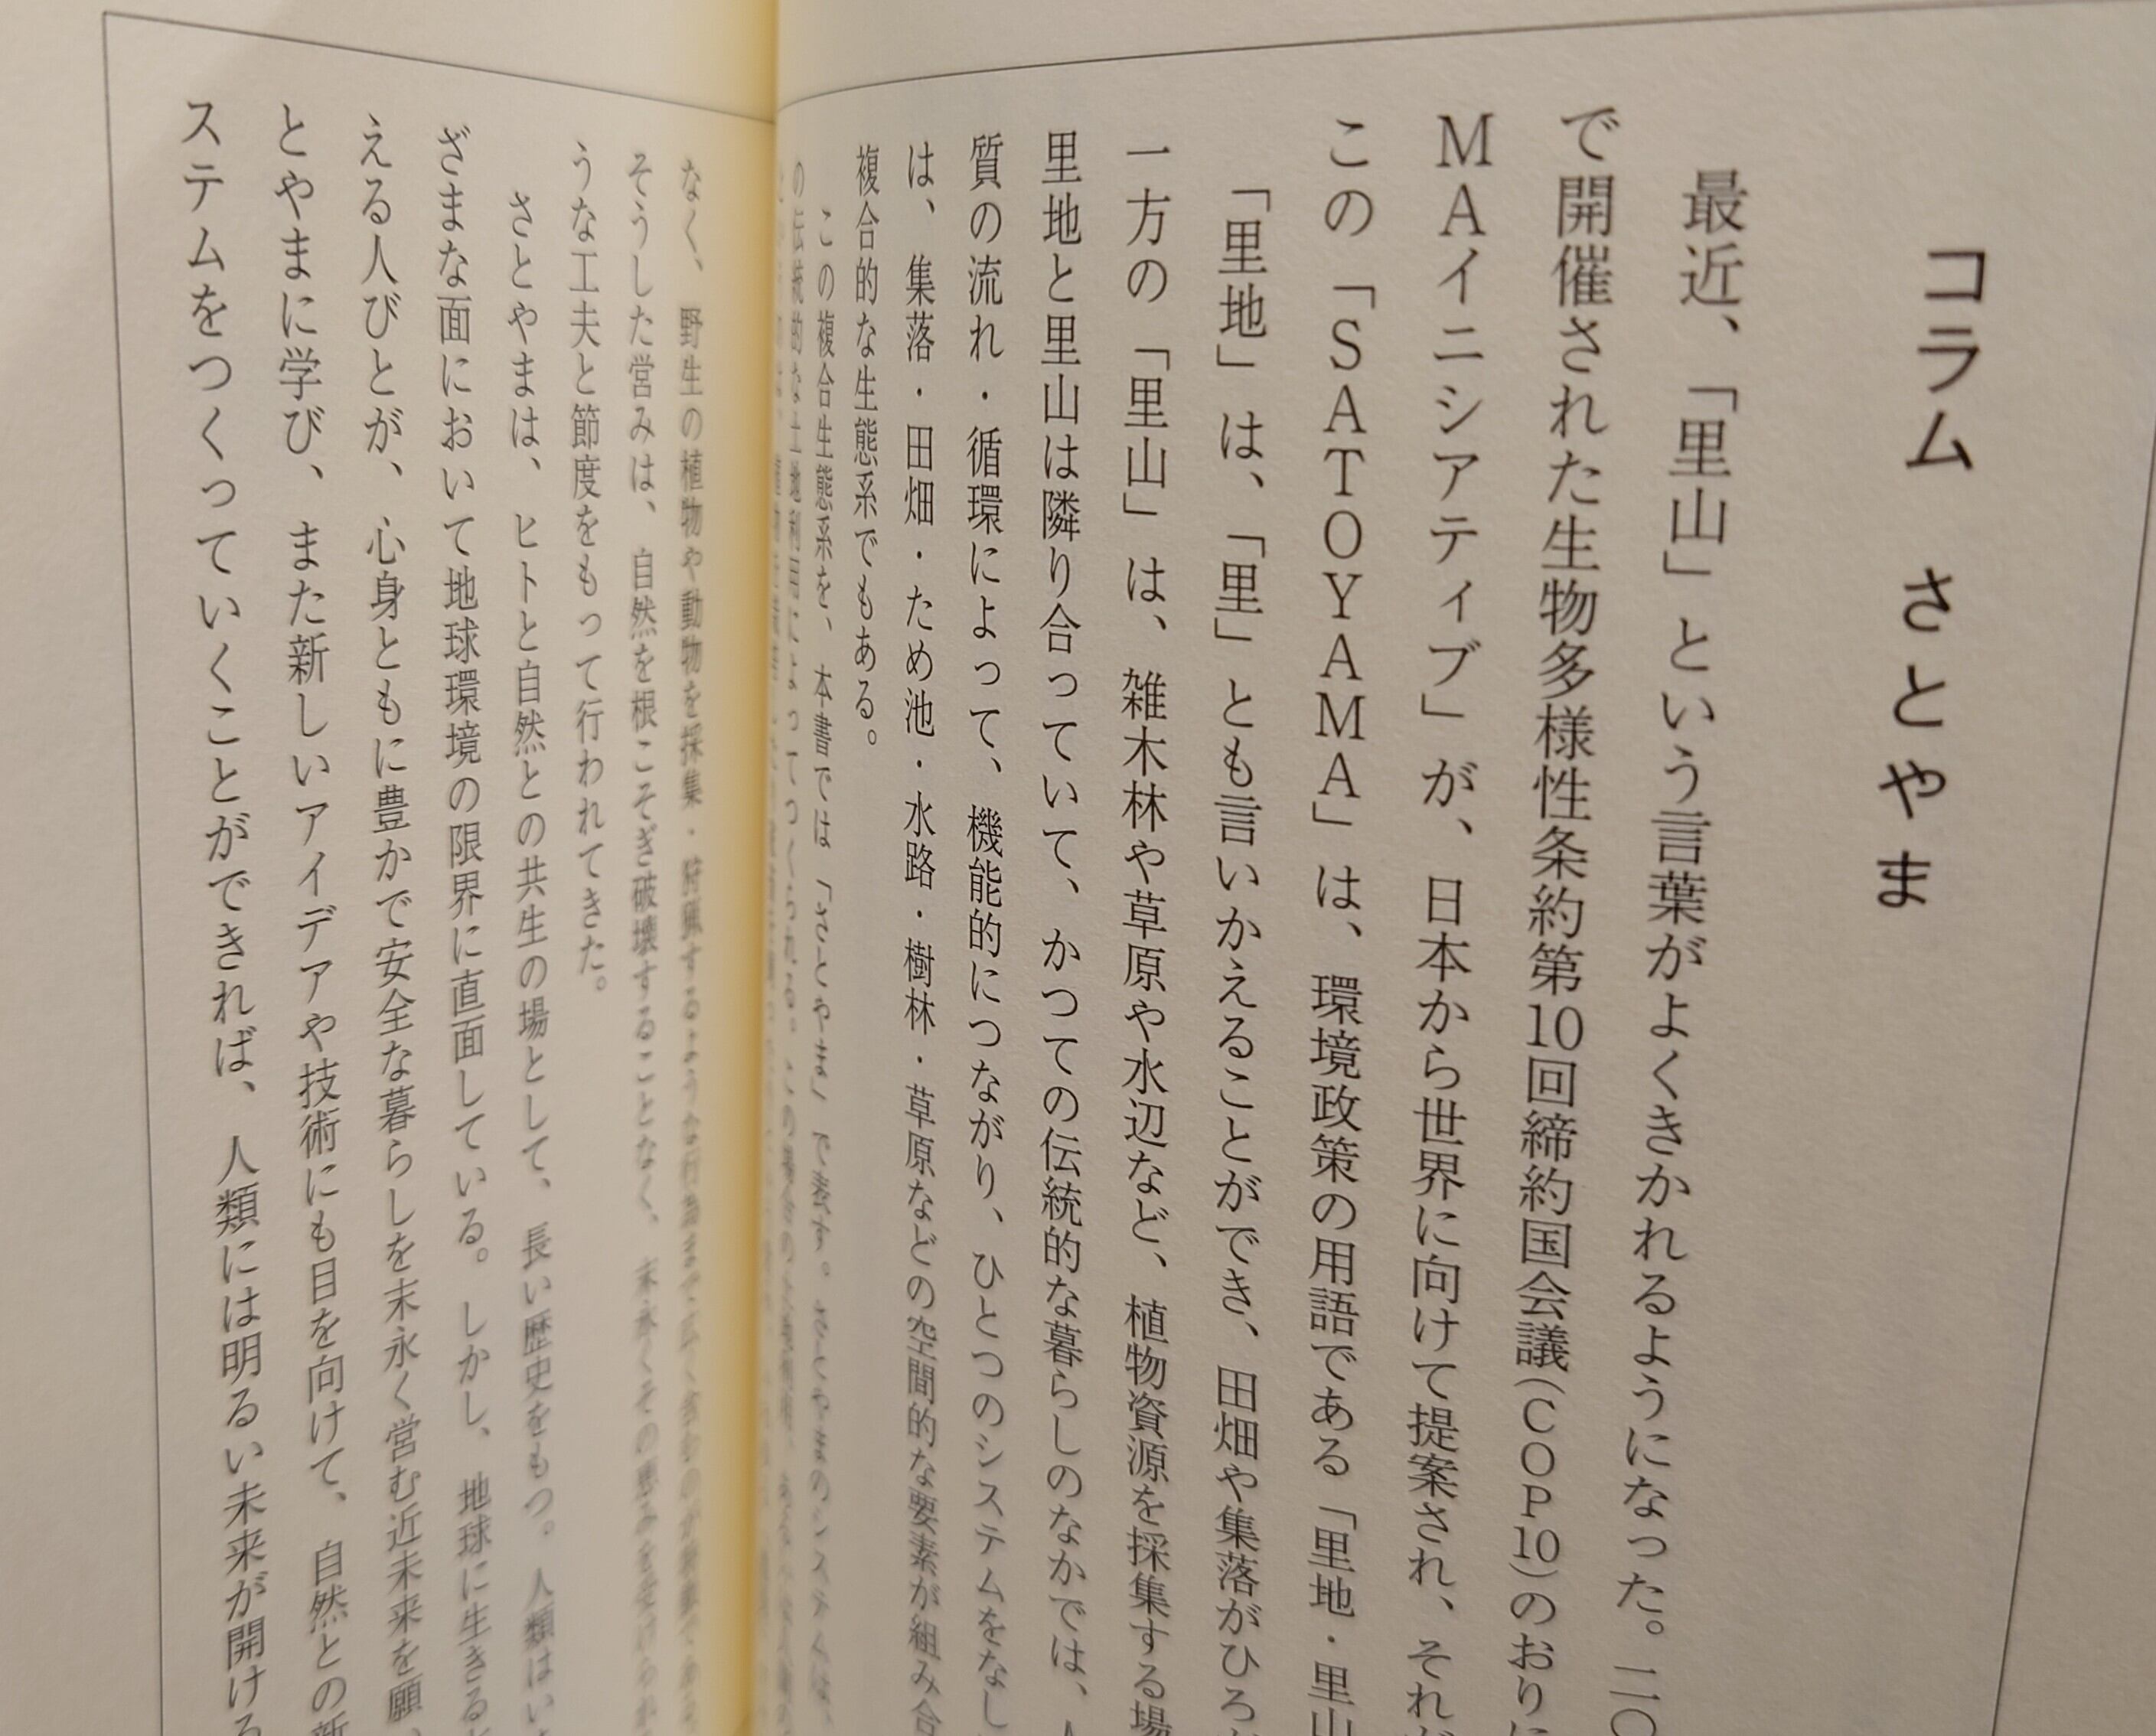 コラム さとやま
最近、「里山」という言葉がよくきかれるようになった。二〇
で開催された生物多様性条約第10回締約国会議(COP10)のおりに
MAイニシアティブ」が、日本から世界に向けて提案され、それが
この「SATOYAMA」は、環境政策の用語である「里地・里山
「里地」は、「里」とも言いかえることができ、田畑や集落がひろ
一方の「里山」は、雑木林や草原や水辺など、植物資源を採集する場
里地と里山は隣り合っていて、かつての伝統的な暮らしのなかでは、
質の流れ・循環によって、機能的につながり、ひとつのシステムをなし
は、集落・田畑・ため池・水路・樹林・草原などの空間的な要素が組み合
複合的な生態系でもある。
この複合生態系を、本書では「さとやま」で表す。さとやまのシステムは、
の伝統的な土地利用によってつくられる。
なく、野生の植物や動物を採集・狩猟するような行為まで
そうした営みは、自然を根こそぎ破壊することなく、末永くその恵みを受け
うな工夫と節度をもって行われてきた。
さとやまは、ヒトと自然との共生の場として、長い歴史をもつ。人類はい
ざまな面において地球環境の限界に直面している。しかし、地球に生きる
える人びとが、心身ともに豊かで安全な暮らしを末永く営む近未来を願
とやまに学び、また新しいアイデアや技術にも目を向けて、自然との新
ステムをつくっていくことができれば、人類には明るい未来が開ける